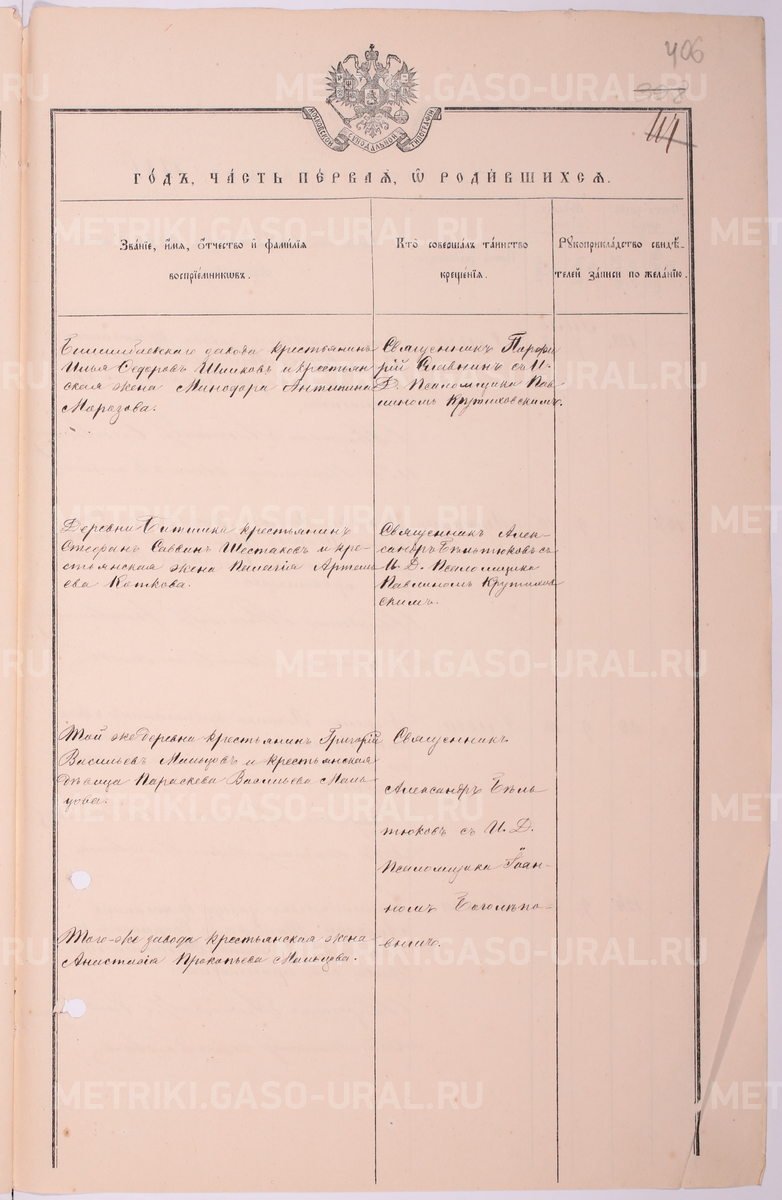 406
398
114
МОСКОВСКОЙ СѴНОДАЛЬНОЙ ТИПОГРАФІИ
ГО́ДЪ, ЧА́СТЬ ПЕ́РВАѦ, Ѡ РОДИ́ВШИХСѦ.
Зва́нїе, и́мѧ, ѻ҆́тчество и҆ фами́лїѧ
воспрїе́мниковъ.
Кто̀ соверша́лъ та́инство
креще́нїѧ.
Рꙋкоприкла́дство свидѣ́-
телей за́писи по жела́нїю.
Билимбаевскаго завода крестьянинъ
Илья Ѳедоровъ Шишовъ и крестьян-
ская жена Минодора Антипина
Морозова.
Священникъ Порфи
рій Славнинъ съ И.
Д. Псаломщика Пав-
линомъ Крутиховскимъ.
Деревни Битимки крестьянинъ
Стефанъ Саввинъ Шестаковъ и кре-
стьянская жена Палагія Артемь
ева Коткова.
Священникъ Алек-
сандръ Бѣльтюковъ съ
И. Д. Псаломщика
Павлиномъ Крутихов
скимъ.
Той же деревни крестьянинъ Григорій
Васильевъ Мальцовъ и крестьянская
дѣвица Параскева Васильева Маль-
цова.
Священникъ
Александръ Бѣль-
тюковъ съ И. Д.
Псаломщика Іоан-
номъ Боголѣпо-
вымъ.
Того-же завода крестьянская жена
Анастасія Прокопьева Мальцова.
METRIKI.GASO-URAL.RU